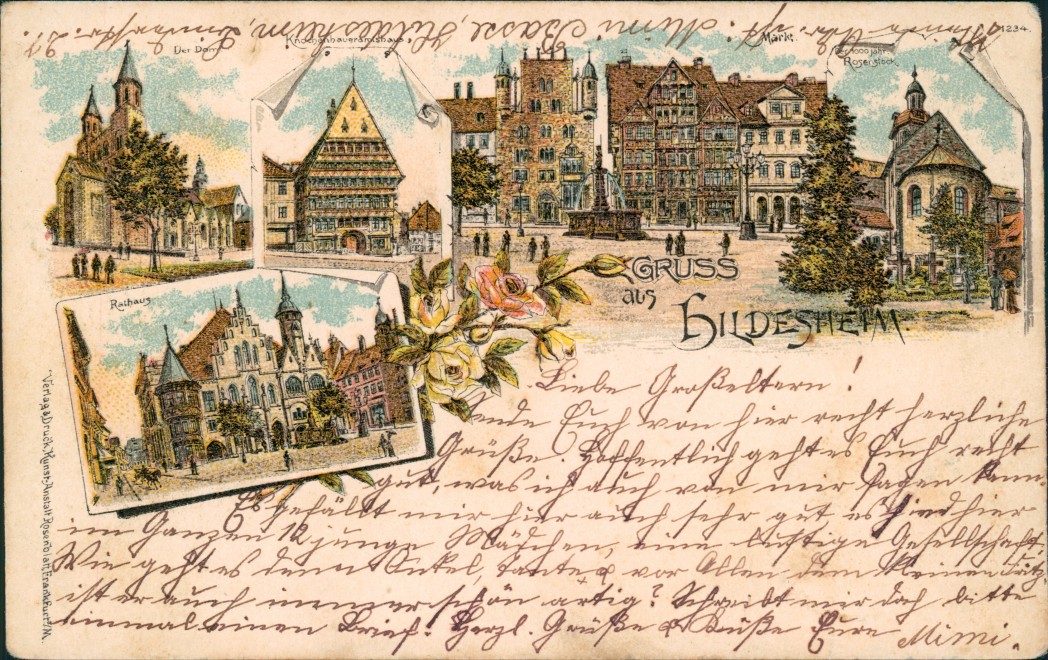 Der Dom
Knochenhaueramtshaus
Markt
Der 1000 jähr.
Rosenstock
1234.
Rathaus
GRUSS
aus
HILDESHEIM
Verlag & Druck, Kunst-Anstalt Rosenblatt, Frankfurt/M.
Mimi Basse, Hildesheim,
Liebe Großeltern!
Sende Euch von hier recht herzliche
Grüße. Hoffentlich geht es Euch recht
gut, was ich auch von mir sagen kann.
Es gefällt mir hier auch sehr gut es sind hier
im Ganzen 12 junge Mädchen, eine lustige Gesellschaft.
Wie geht es denn Onkel, Tante & vor Allen dem kleinen Fritz,
ist er auch immer schön artig? Schreibt mir doch bitte
einmal einen Brief. Herzl. Grüße & Küße Eure Mimi.